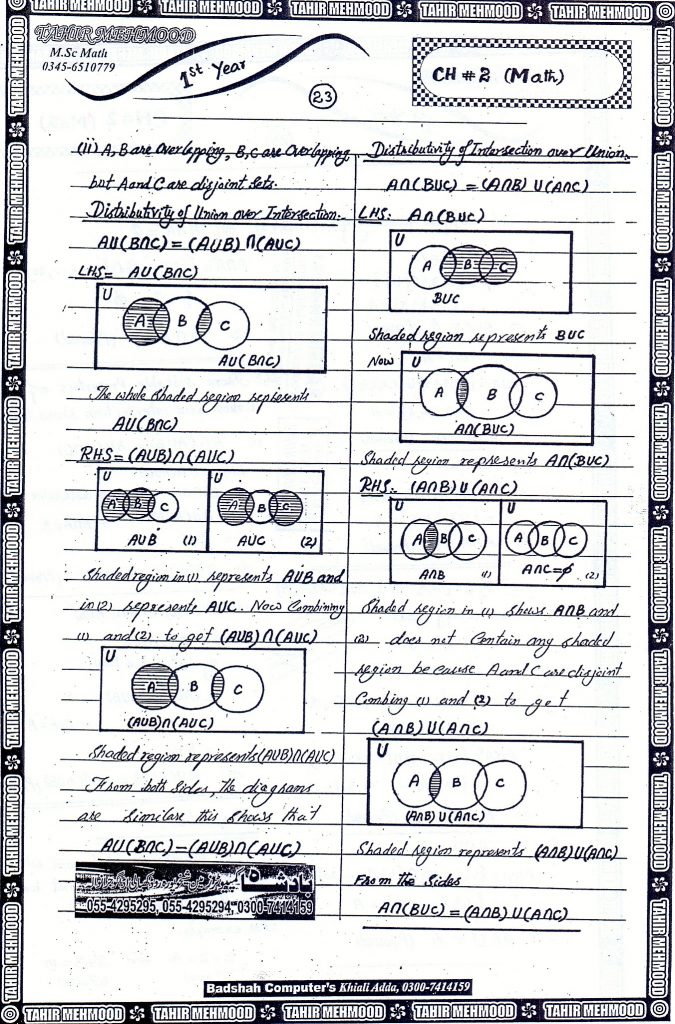 TAHIR MEHMOOD TAHIR MEHMOOD TAHIR MEHMOOD TAHIR MEHMOOD TAHIR MEHMOOD
TAHIR MEHMOOD
M.Sc Math
0345-6510779
1st Year
23
CH # 2 (Math)
(ii) A, B are Overlapping, B, C are Overlapping
but A and C are disjoint sets.
Distributivity of Union over Intersection:-
AU(B∩C) = (AUB)∩(AUC)
LHS = AU(B∩C)
U
A B C
AU(B∩C)
The whole shaded region repesents
AU(B∩C)
RHS = (AUB)∩(AUC)
U U
A B C A B C
AUB (1) AUC (2)
Shaded region in (1) represents AUB and
in (2) represents AUC. Now Combining
(1) and (2) to get (AUB)∩(AUC)
U
A B C
(AUB)∩(AUC)
Shaded region represents (AUB)∩(AUC)
From both Sides, the diagrams
are Similare this shows that
AU(B∩C) = (AUB)∩(AUC)
055-4295295, 055-4294294, 0300-7414159
Distributivity of Intersection over Union:.
A∩(BUC) = (A∩B)U(A∩C)
LHS: A∩(BUC)
U
A B C
BUC
Shaded region represents BUC
Now U
A B C
A∩(BUC)
Shaded region represents A∩(BUC)
RHS:. (A∩B)U(A∩C)
U U
A B C A B C
A∩B (1) A∩C=ϕ (2)
Shaded region in (1) shows A∩B and
(2) does not Contain any shaded
region be cause A and C are disjoint
Combing (1) and (2) to get
(A∩B)U(A∩C)
U
A B C
(A∩B)U(A∩C)
Shaded region represents (A∩B)U(A∩C)
From the Sides
A∩(BUC) = (A∩B)U(A∩C)
Badshah Computer's Khiali Adda, 0300-7414159
TAHIR MEHMOOD TAHIR MEHMOOD TAHIR MEHMOOD TAHIR MEHMOOD TAHIR MEHMOOD